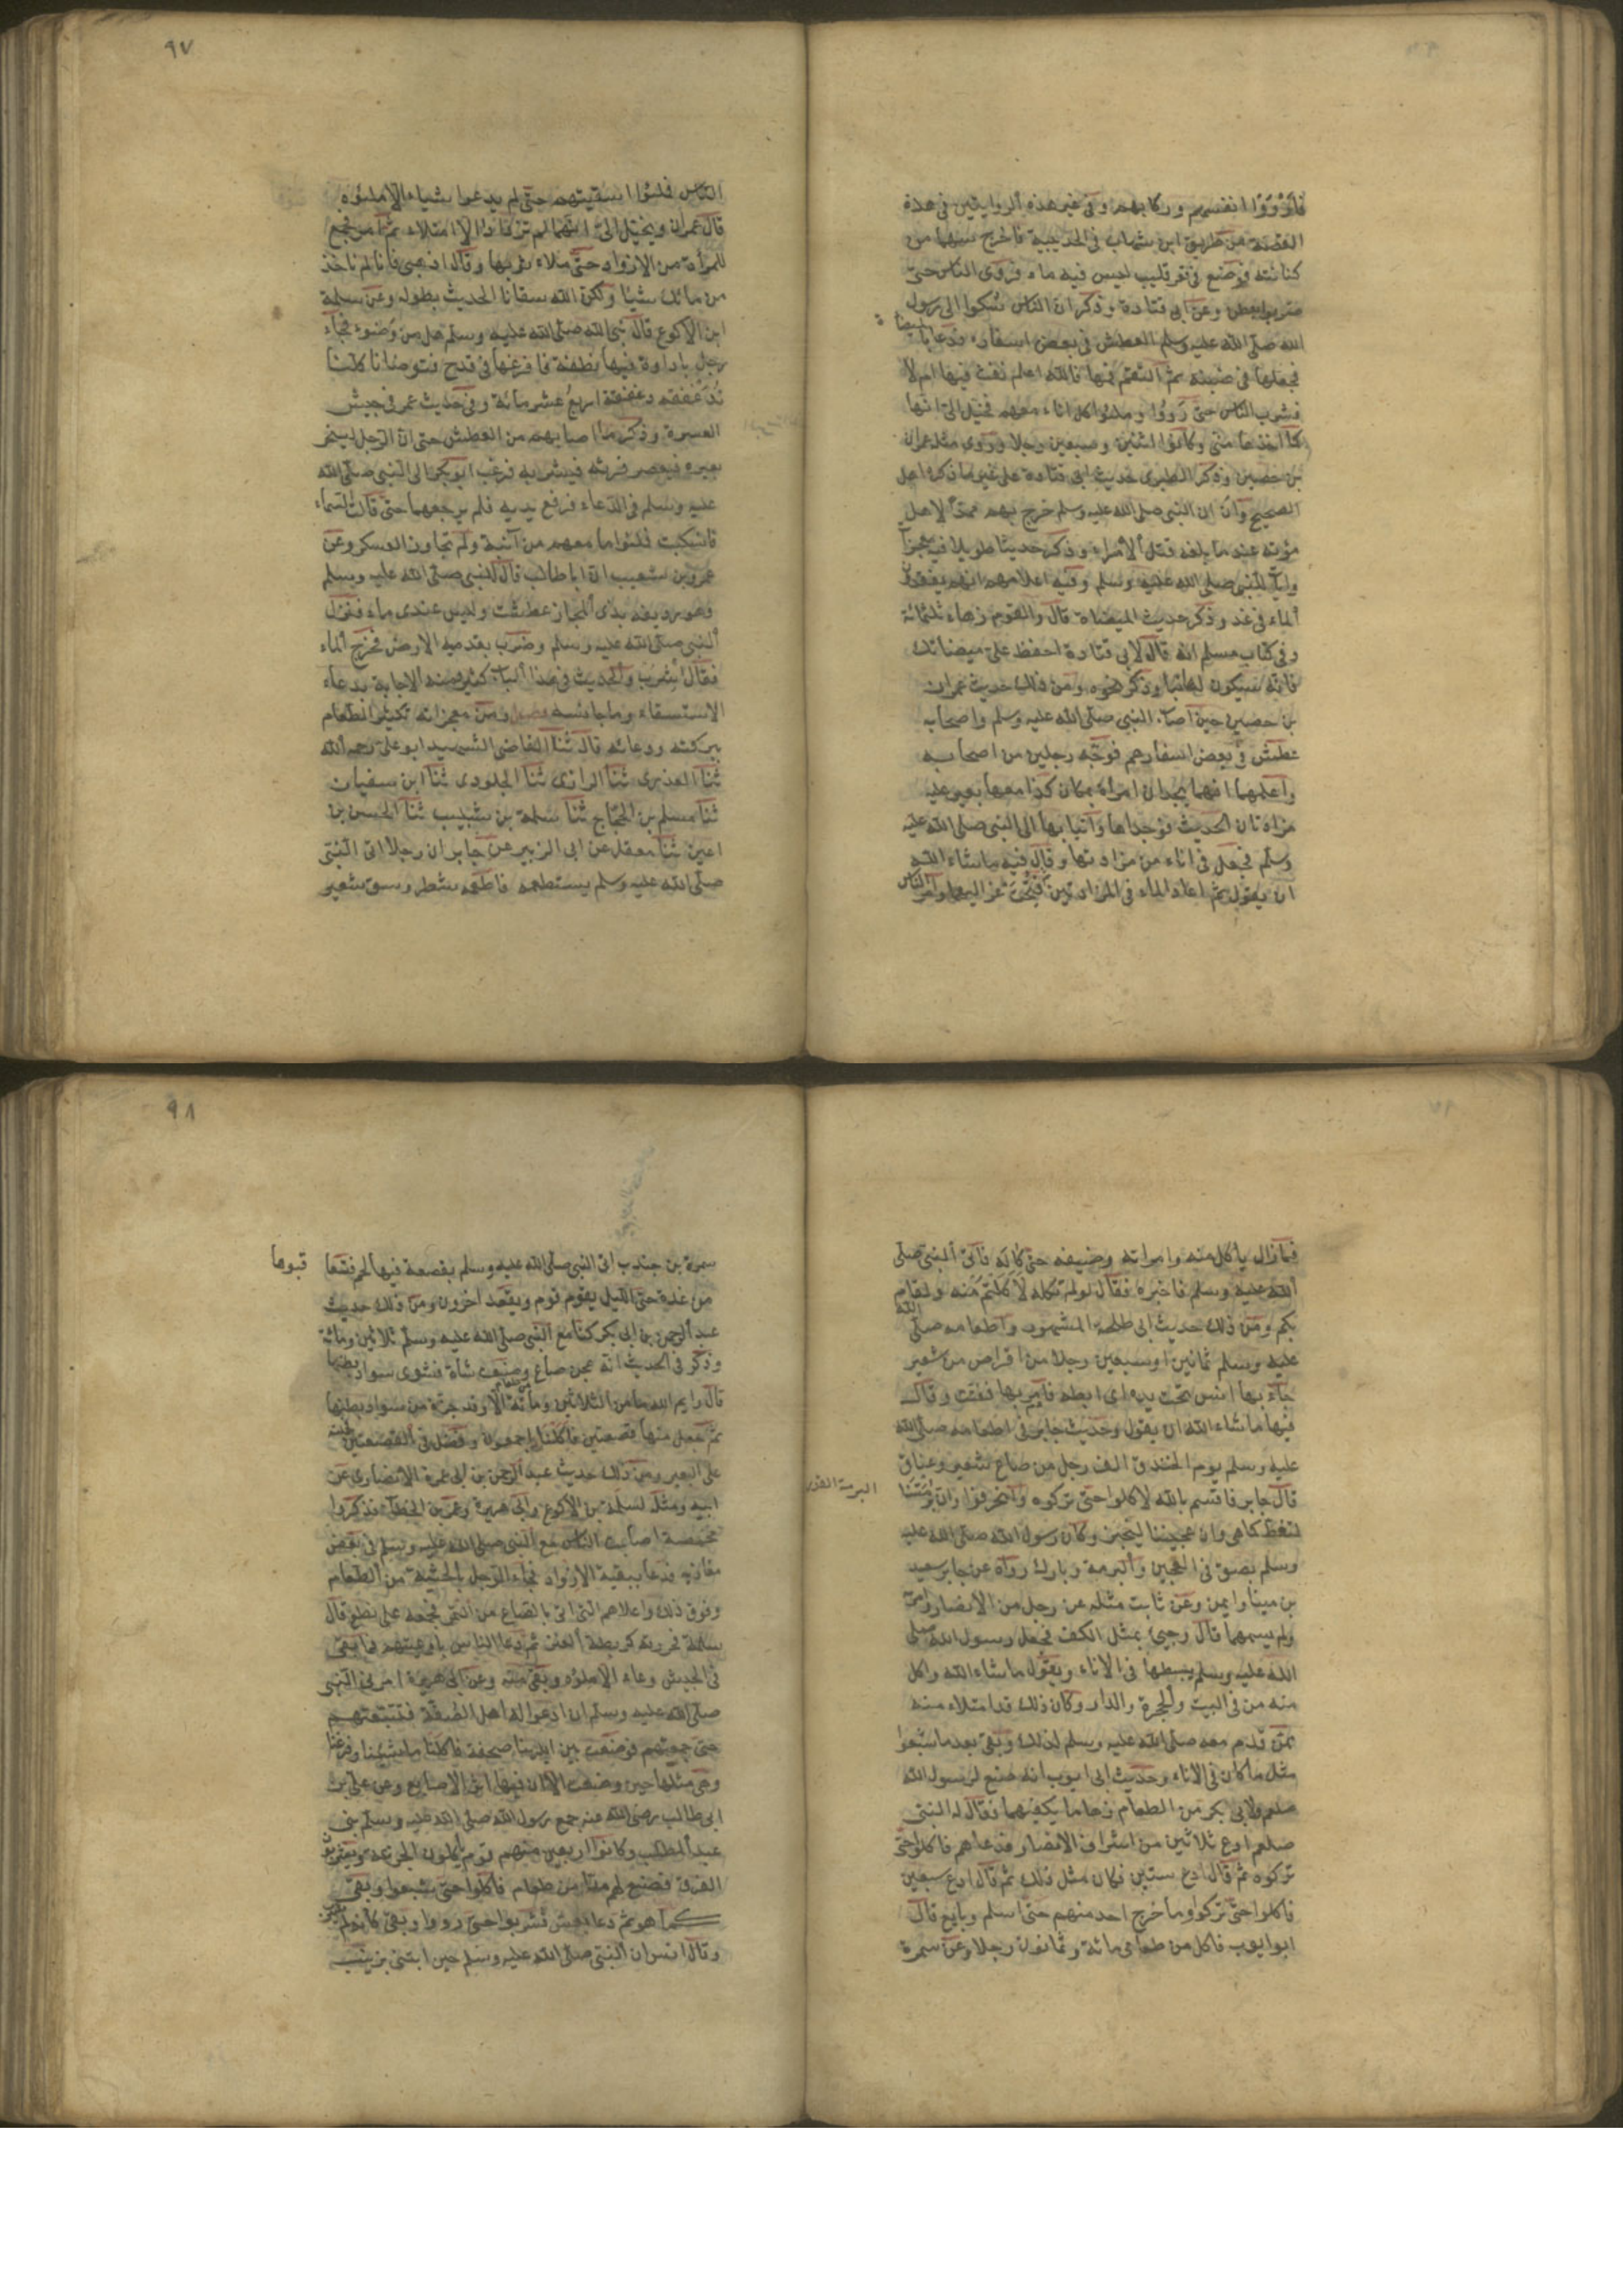 فأرووا انفسهم وركابهم وفي غير هذه الروايتين في هذه
القصة من طريق ابن شهاب في الحديبية فاخرج سهما من
كنانته فوضع في قعر قليب ليس فيه ماء فروى الناس حتى
ضربوا بعطن وعن ابي قتادة وذكر ان الناس شكوا الى رسول
الله صلى الله عليه وسلم العطش في بعض اسفاره فدعا بالميضاة
فجعلها في ضبنه ثم التقم فمها فالله اعلم نفث فيها ام لا
فشرب الناس حتى رووا وملئوا كل اناء معهم فخيل الي انها
كما اخذها مني وكانوا اثنين وسبعين رجلا وروى مثله عمران
بن حصين وذكر الطبري حديث ابي قتادة على غير ما ذكره اهل
الصحيح وان النبي صلى الله عليه وسلم خرج بهم ممدا لاهل
مؤتة عند ما بلغه قتل الأمراء وذكر حديثا طويلا فيه معجزات
وايات للنبي صلى الله عليه وسلم وفيه اعلامهم انهم يفقدون
الماء في غد وذكر حديث الميضاة قال والقوم زهاء ثلثمائة
وفي كتاب مسلم انه قال لابي قتادة احفظ علي ميضاتك
فانه سيكون لها نبا وذكر نحوه ومن ذلك حديث عمران
بن حصين حين اصاب النبي صلى الله عليه وسلم واصحابه
عطش في بعض اسفارهم فوجه رجلين من اصحابه
واعلمهما انهما يجدان امراة بمكان كذا معها بعير عليه
مزادتان الحديث فوجداها وأتيا بها الى النبي صلى الله عليه
وسلم فجعل في اناء من مزادتيها وقال فيه ما شاء الله
ان يقول ثم اعاد الماء في المزادتين ثم فتحت عزاليهما وامر الناس
٩٧
الناس فملئوا اسقيتهم حتى لم يدعوا شياء الا ملئوه
قال عمران ويخيل الي انهما لم تزدادا الا امتلاء ثم امر فجمع
للمرأة من الازواد حتى ملاء ثوبها وقال اذهبي فانا لم ناخذ
من مائك شيئا ولكن الله سقانا الحديث بطوله وعن سلمة
ابن الاكوع قال نبي الله صلى الله عليه وسلم هل من وضوء فجاء
رجل باداوة فيها نطفة فافرغها في قدح فتوضانا كلنا
ندغفقه دغفقة اربع عشر مائة وفي حديث عمر في جيش
العسرة وذكر ما اصابهم من العطش حتى ان الرجل لينحر
بعيره فيعصر فرثه فيشربه فرغب ابو بكر الى النبي صلى الله
عليه وسلم في الدعاء فرفع يديه فلم يرجعهما حتى قالت السماء
فانسكبت فملئوا ما معهم من آنية ولم تجاوز العسكر وعن
عمرو بن شعيب ان ابا طالب قال للنبي صلى الله عليه وسلم
وهو رديفه بذي المجاز عطشت وليس عندي ماء فنزل
النبي صلى الله عليه وسلم وضرب بقدميه الارض فخرج الماء
فقال اشرب والحديث في هذا الباب كثير ومنه الاجابة بدعاء
الاستسقاء وما جانسه فصل ومن معجزاته تكثير الطعام
ببركته ودعائه قال ثنا القاضي الشهيد ابو علي رحمه الله
ثنا العذري ثنا الرازي ثنا الجلودي ثنا ابن سفيان
ثنا مسلم بن الحجاج ثنا سلمة بن شبيب ثنا الحسن بن
اعين ثنا معقل عن ابي الزبير عن جابر ان رجلا اتى النبي
صلى الله عليه وسلم يستطعمه فاطعمه شطر وسق شعير
فما زال يأكل منه وامراته وضيفه حتى كاله فاتى النبي صلى
الله عليه وسلم فاخبره فقال لو لم تكله لاكلتم منه ولقام
بكم ومن ذلك حديث ابي طلحة المشهور واطعامه صلى الله
عليه وسلم ثمانين او سبعين رجلا من اقراص من شعير
جاء بها انس تحت يده اي ابطه فامر بها ففتت وقال
فيها ما شاء الله ان يقول وحديث جابر في اطعامه صلى الله
عليه وسلم يوم الخندق الف رجل من صاع شعير وعناق
قال جابر فاقسم بالله لاكلوا حتى تركوه وانحرفوا وان برمتنا
البرمة القدر
لتغط كما هي وان عجيننا ليخبز وكان رسول الله صلى الله عليه
وسلم بصق في العجين والبرمة وبارك رواه عن جابر سعيد
بن مينا وايمن وعن ثابت مثله عن رجل من الانصار وامراته
ولم يسمهما قال وجيء بمثل الكف فجعل رسول الله صلى
الله عليه وسلم يبسطها في الاناء ويقول ما شاء الله واكل
منه من في البيت والحجرة والدار وكان ذلك قد امتلاء منه
ممن قدم معه صلى الله عليه وسلم لذلك وبقي بعد ما شبعوا
مثل ما كان في الاناء وحديث ابي ايوب انه صنع لرسول الله
صلعم ولابي بكر من الطعام زهاء ما يكفيهما فقال له النبي
صلعم ادع ثلاثين من اشراف الانصار فدعاهم فاكلوا حتى
تركوه ثم قال ادع ستين فكان مثل ذلك ثم قال ادع سبعين
فاكلوا حتى تركوا وما خرج احد منهم حتى اسلم وبايع قال
ابو ايوب فاكل من طعامي مائة وثمانون رجلا وعن سمرة
٩٨
سمرة بن جندب اتي النبي صلى الله عليه وسلم بقصعة فيها لحم فتعا
قبوها
من غدوة حتى الليل يقوم قوم ويقعد آخرون ومن ذلك حديث
عبد الرحمن بن ابي بكر كنا مع النبي صلى الله عليه وسلم ثلاثين ومائة
وذكر في الحديث انه عجن صاع وصنعت شاة فشوى سواد بطنها
قال وايم الله ما من الثلاثين ومائة الا وقد حز له حزة من سواد بطنها
ثم جعل منها قصعتين فاكلنا اجمعون وفضل في القصعتين فحملته
على البعير ومن ذلك حديث عبد الرحمن بن ابي عمرة الانصاري عن
ابيه ومثله لسلمة بن الاكوع وابي هريرة وعمر بن الخطاب فذكروا
مخمصة اصابت الناس مع النبي صلى الله عليه وسلم في بعض
مغازيه فدعا ببقية الازواد فجاء الرجل بالحثية من الطعام
وفوق ذلك واعلاهم الذي اتى بالصاع من التمر فجمعه على نطع قال
سلمة فحزرته كربضة العنز ثم دعا الناس باوعيتهم فما بقي
في الجيش وعاء الا ملئوه وبقي منه وعن ابي هريرة امرني النبي
صلى الله عليه وسلم ان ادعو له اهل الصفة فتتبعتهم
حتى جمعتهم فوضعت بين ايدينا صحفة فاكلنا ما شئنا وفرغنا
وهي مثلها حين وضعت الا ان فيها اثر الاصابع وعن علي بن
ابي طالب رضي الله عنه جمع رسول الله صلى الله عليه وسلم بني
عبد المطلب وكانوا اربعين منهم قوم يأكلون الجذعة ويشربون
الفرق فصنع لهم مدا من طعام فاكلوا حتى شبعوا وبقي
كما هو ثم دعا بعس فشربوا حتى رووا وبقي كأنه لم يشرب
وقال انس ان النبي صلى الله عليه وسلم حين ابتنى بزينب